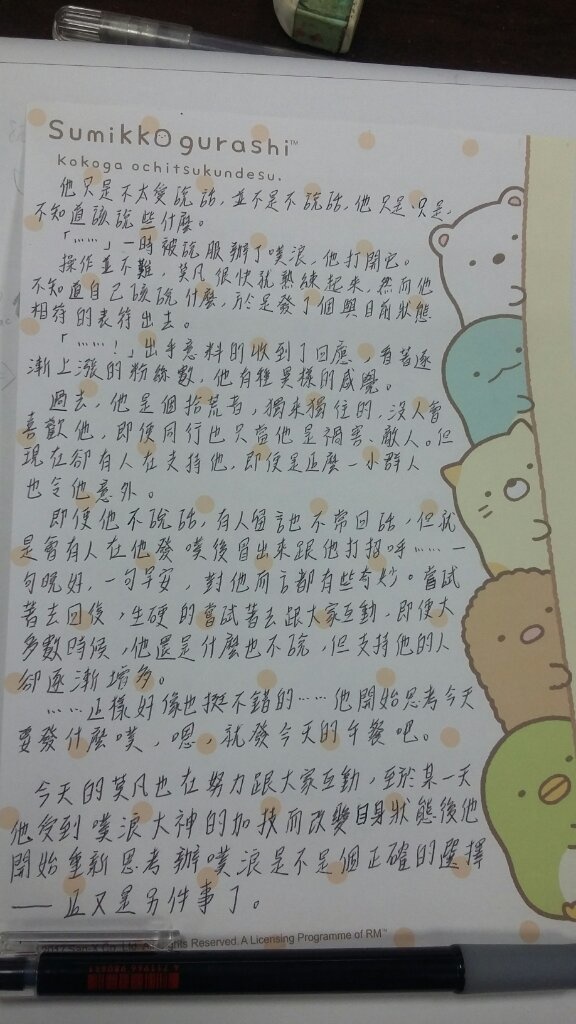 Sumikkogurashi™
kokoga ochitsukundesu.
他只是不太愛說話,並不是不說話,他只是、只是、
不知道該說些什麼。
「……」一時被說服辦了噗浪,他打開它。
操作並不難,莫凡很快就熟練起來,然而他
不知道自己該說什麼,於是發了個與目前狀態
相符的表符出去。
「……!」出乎意料的收到了回應,看著逐
漸上漲的粉絲數,他有種異樣的感覺。
過去,他是個拾荒者,獨來獨往的,沒人會
喜歡他,即便同行也只當他是禍害、敵人。但
現在卻有人在支持他,即使是這麼一小群人
也令他意外。
即便他不說話,有人留言也不常回話,但就
是會有人在他發噗後冒出來跟他打招呼……一
句晚好,一句早安,對他而言都有些奇妙。嘗試
著去回復,生硬的嘗試著去跟大家互動,即使大
多數時候,他還是什麼也不說,但支持他的人
卻逐漸增多。
……這樣好像也挺不錯的……他開始思考今天
要發什麼噗,嗯,就發今天的午餐吧。
今天的莫凡也在努力跟大家互動,至於某一天
他受到噗浪大神的加技而改變自身狀態後他
開始重新思考辦噗浪是不是個正確的選擇
——這又是另件事了。
©2017 San-X Co., Ltd. All Rights Reserved. A Licensing Programme of RM™